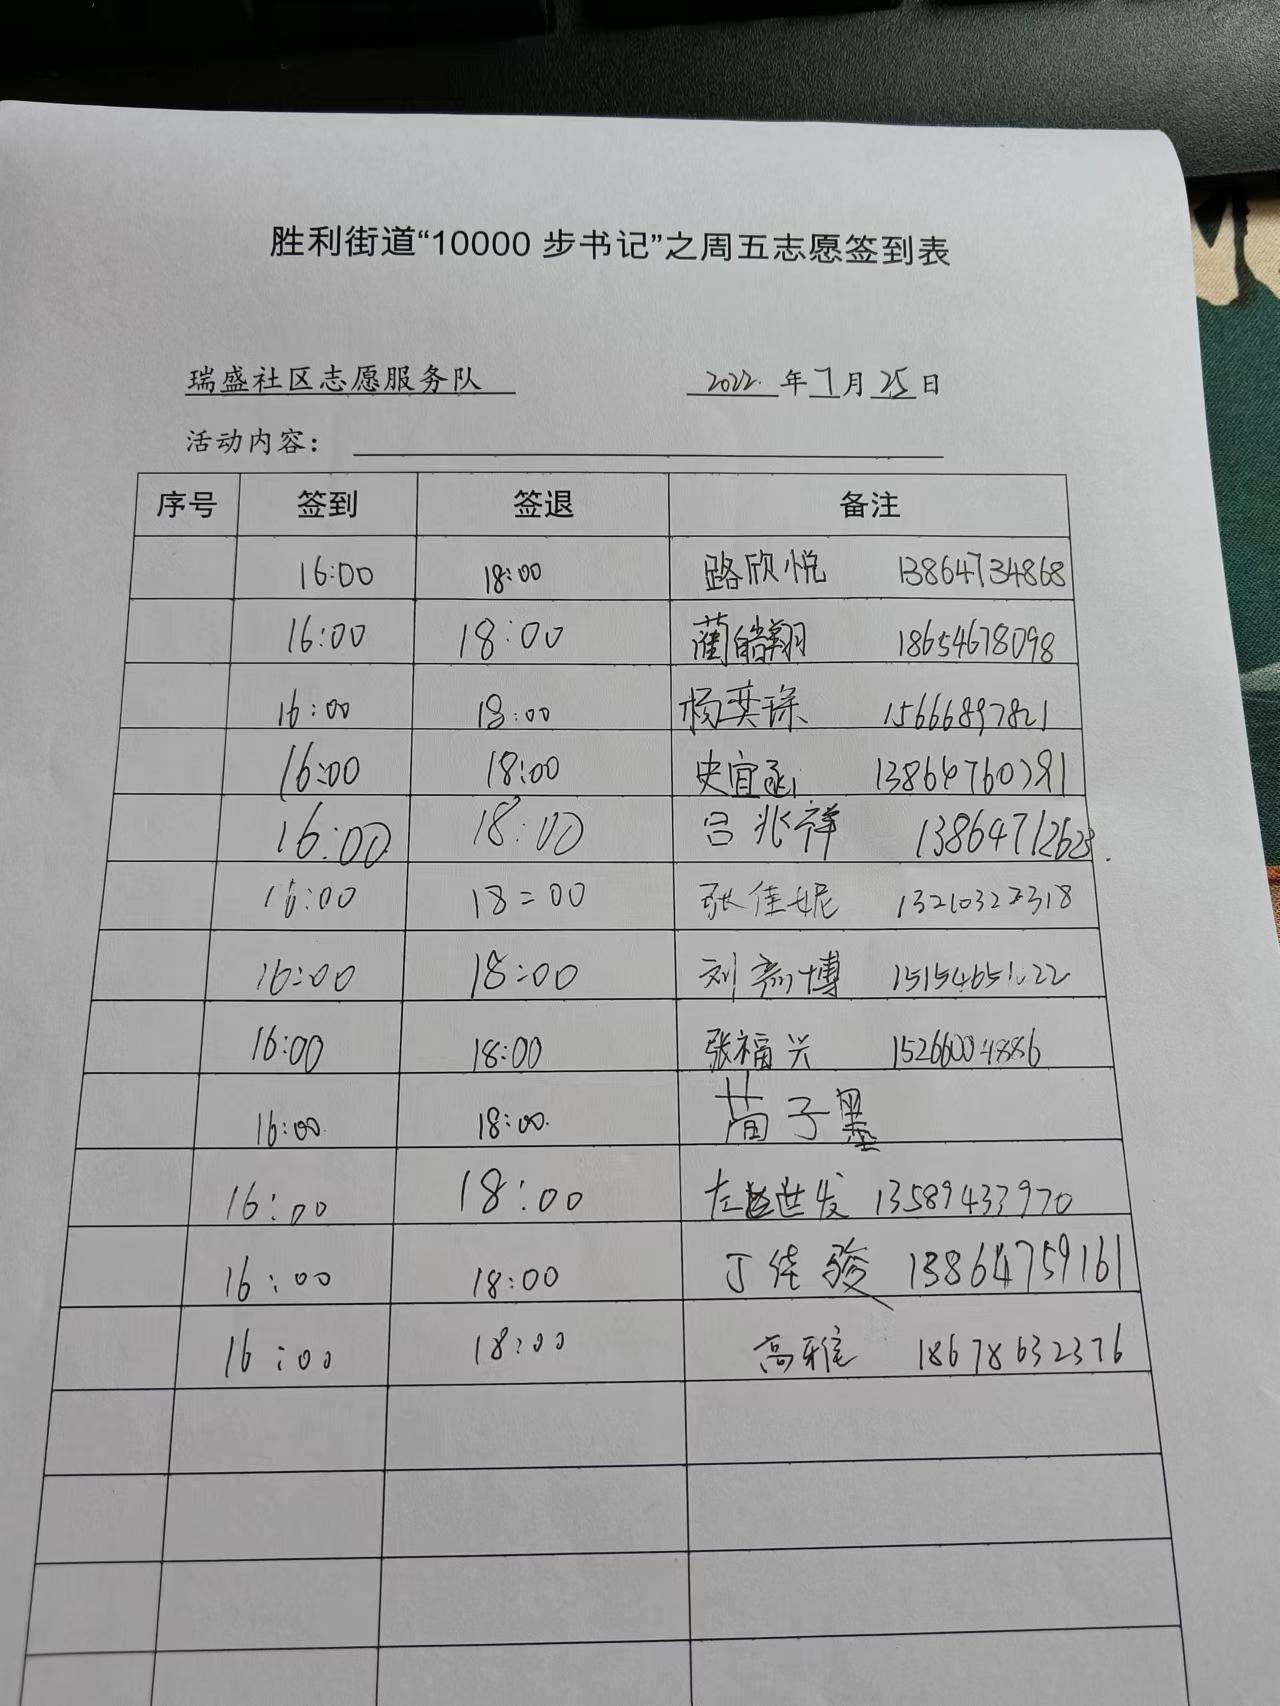 胜利街道“10000 步书记”之周五志愿签到表
瑞盛社区志愿服务队 2022. 年 7 月 25 日
活动内容：
序号 签到 签退 备注
16:00 18:00 路欣悦 13864734868
16:00 18:00 蔺皓翔 18654678098
16:00 18:00 杨奕琛 15666897821
16:00 18:00 史宜函
16:00 18:00 吕兆祥
16:00 18:00 张佳妮
16:00 18:00 刘彦博
16:00 18:00 张福兴 15266004886
16:00 18:00. 子墨
16:00 18:00 左世发 13589433970
16:00 18:00 丁佳骏 13864759161
16:00 18:00 高雅 18678632376